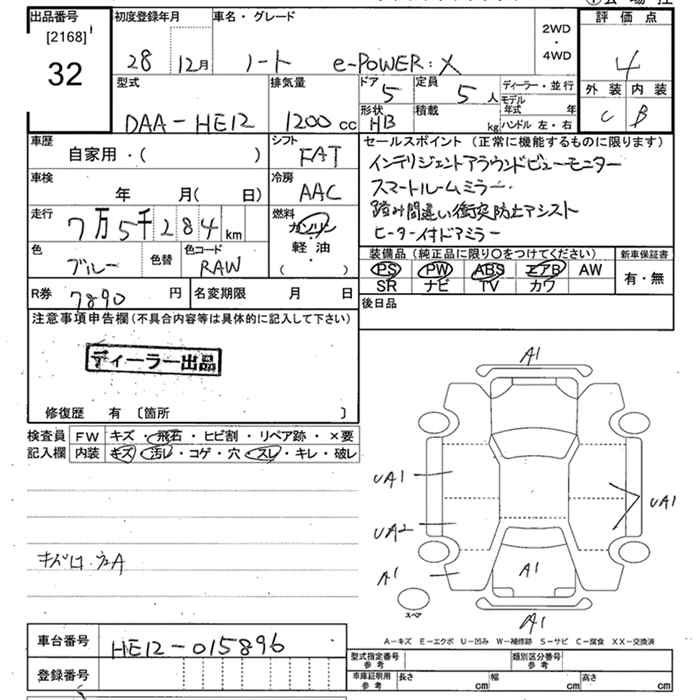 出品番号 初度登録年月 車名・グレード 評価点
[2168] 2WD
32 28 12月 ノート e-POWER:X ・
4WD 4
型式 排気量 ドア 5 定員 5人 ディーラー・並行 外装 内装
モデル年式 年
DAA-HE12 1200cc 形状 HB 積載 kg ハンドル 左・右 C B
車歴 自家用・( ) シフト FAT セールスポイント (正常に機能するものに限ります)
インテリジェントアラウンドビューモニター
車検 年 月( 日) 冷房 AAC スマートルームミラー・
踏み間違い衝突防止アシスト
走行 7万5千284km 燃料 ガソリン・軽油・( ) ヒーター付ドアミラー
色 ブルー 色替 色コード RAW 装備品 (純正品に限り○をつけてください) 新車保証書
PS PW ABS エアB AW 有・無
SR ナビ TV カワ
R券 7890円 名変期限 月 日 後日品
注意事項申告欄 (不具合内容等は具体的に記入して下さい)
ディーラー出品
修復歴 有 〔箇所 〕
検査員 FW キズ・飛石・ヒビ割・リペア跡・×要
記入欄 内装 キズ・汚レ・コゲ・穴・スレ・キレ・破レ
A1
UA1 UA1
UA2
A1 A1
スペア A1
A-キズ E-エクボ U-凹み W-補修跡 S-サビ C-腐食 XX-交換済
車台番号 HE12-015896
型式指定番号 参考 類別区分番号 参考
登録番号 車庫証明用 参考 長さ cm 幅 cm 高さ cm